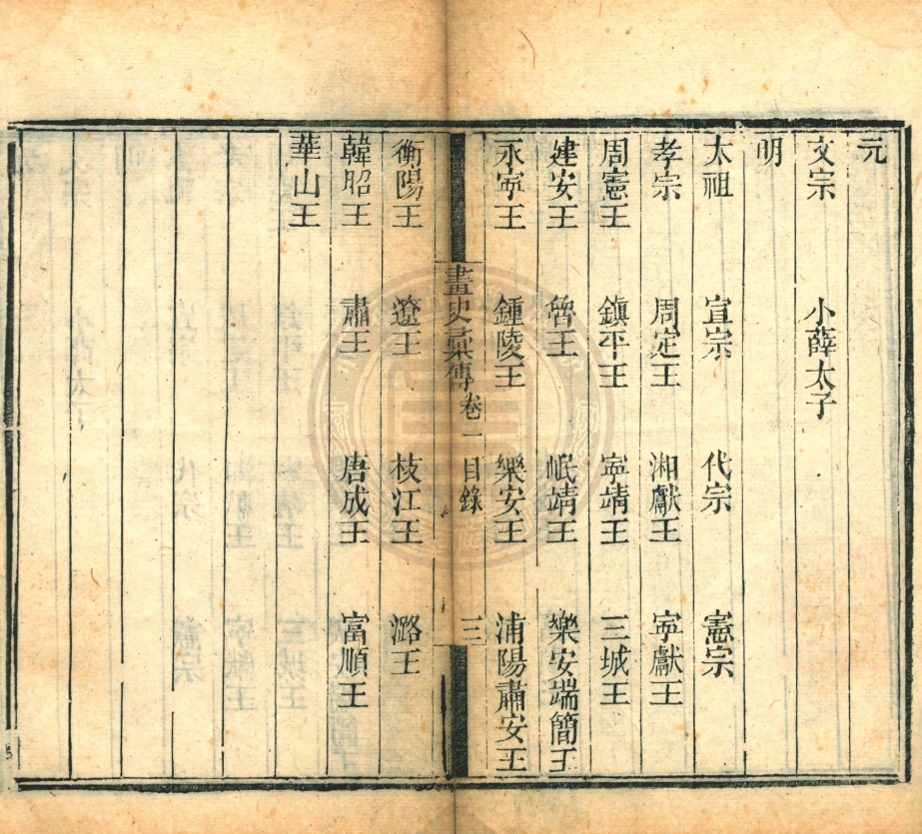 元
文宗 小薛太子
明
太祖 宣宗 代宗 憲宗
孝宗 周定王 湘獻王 寧獻王
周憲王 鎮平王 寧靖王 三城王
建安王 魯王 岷靖王 樂安端簡王
永寧王 鍾陵王 樂安王 浦陽肅安王
畫史彙傳卷一 目錄 三
衡陽王 遼王 枝江王 潞王
韓昭王 肅王 唐成王 富順王
華山王